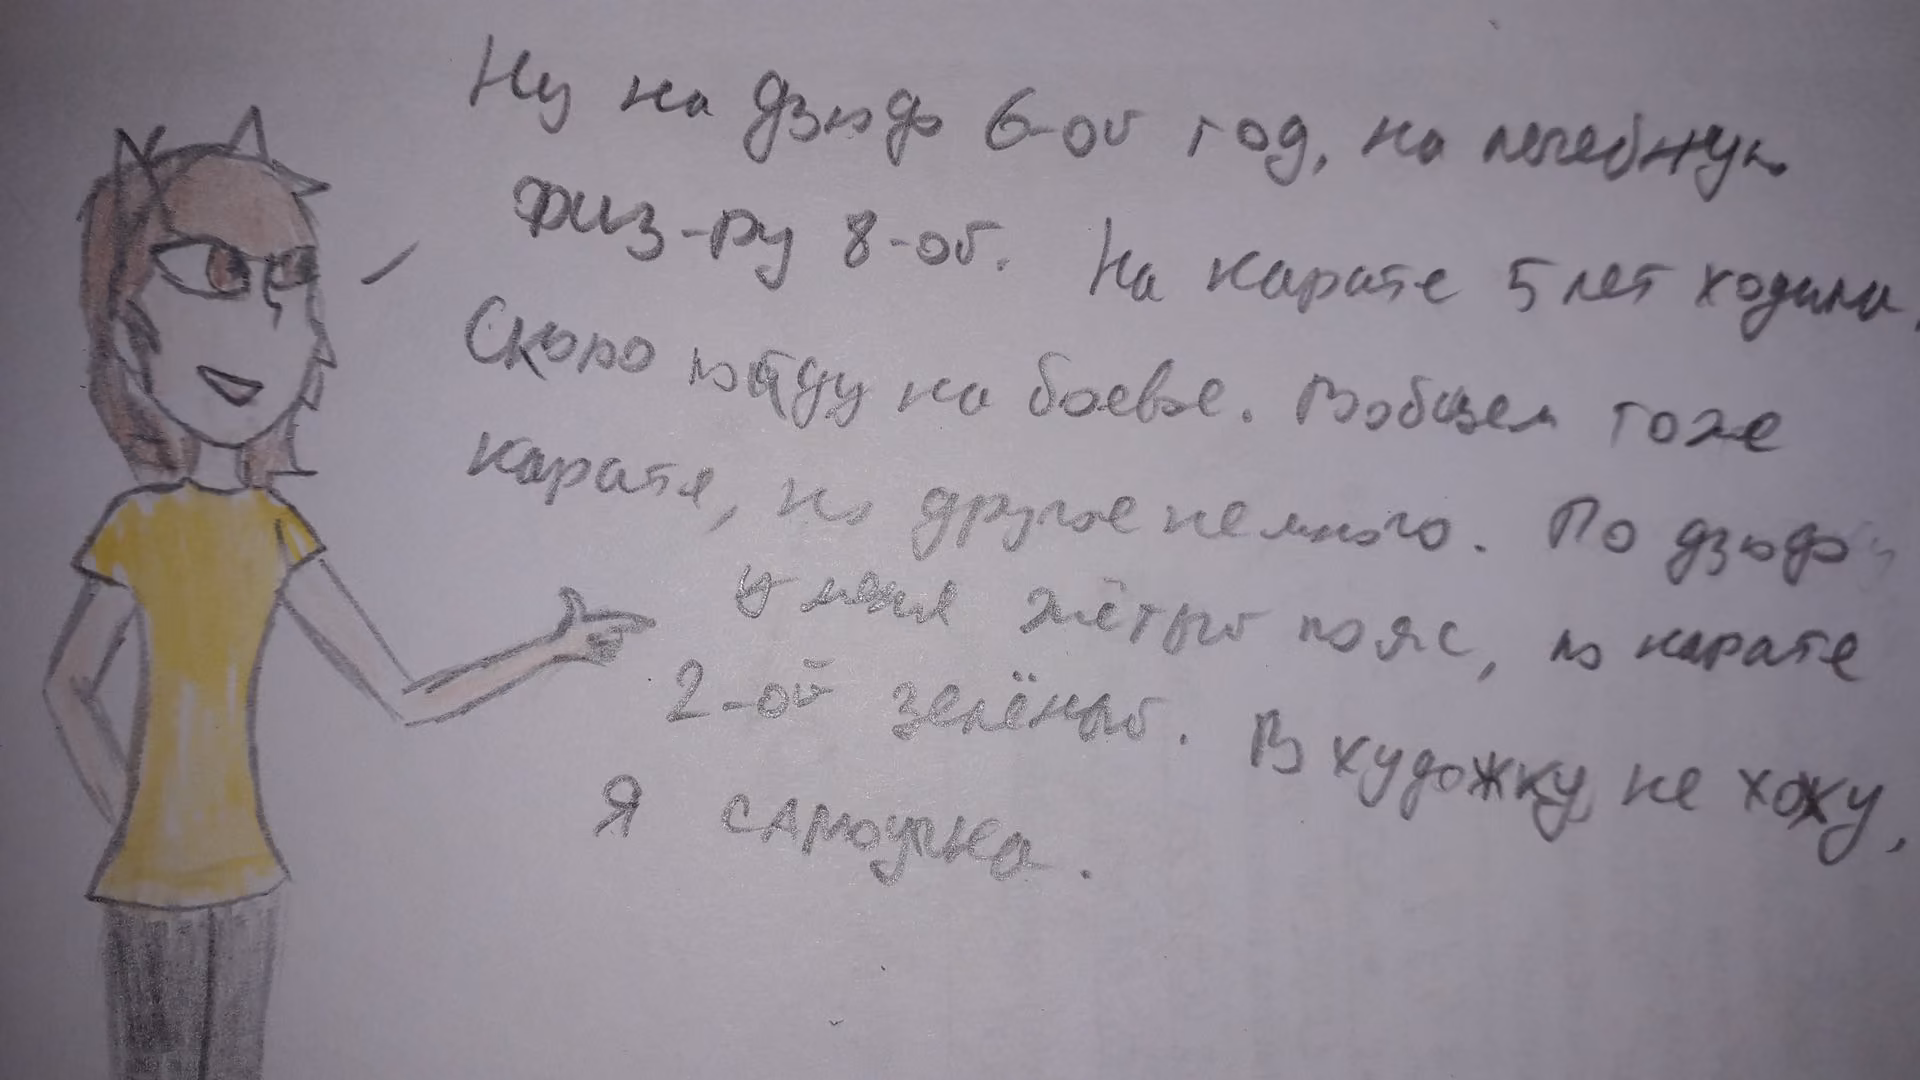 Ну на дзюдо 6-ой год, на лечебную
физ-ру 8-ой. На карате 5 лет ходила.
Скоро пойду на боевое. Вобщем тоже
карате, но другое немного. По дзюдо
у меня жётый пояс, по карате
2-ой зелёный. В художку не хожу,
Я САМоучка.